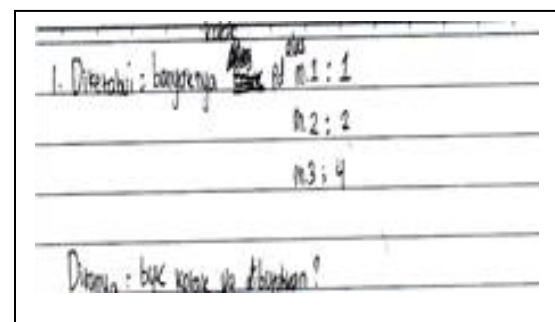 1. Diketahui : banyaknya pd m.1 : 1
m.2 : 2
m.3 : 4
Ditanya : byk kotak yg dibutuhkan?